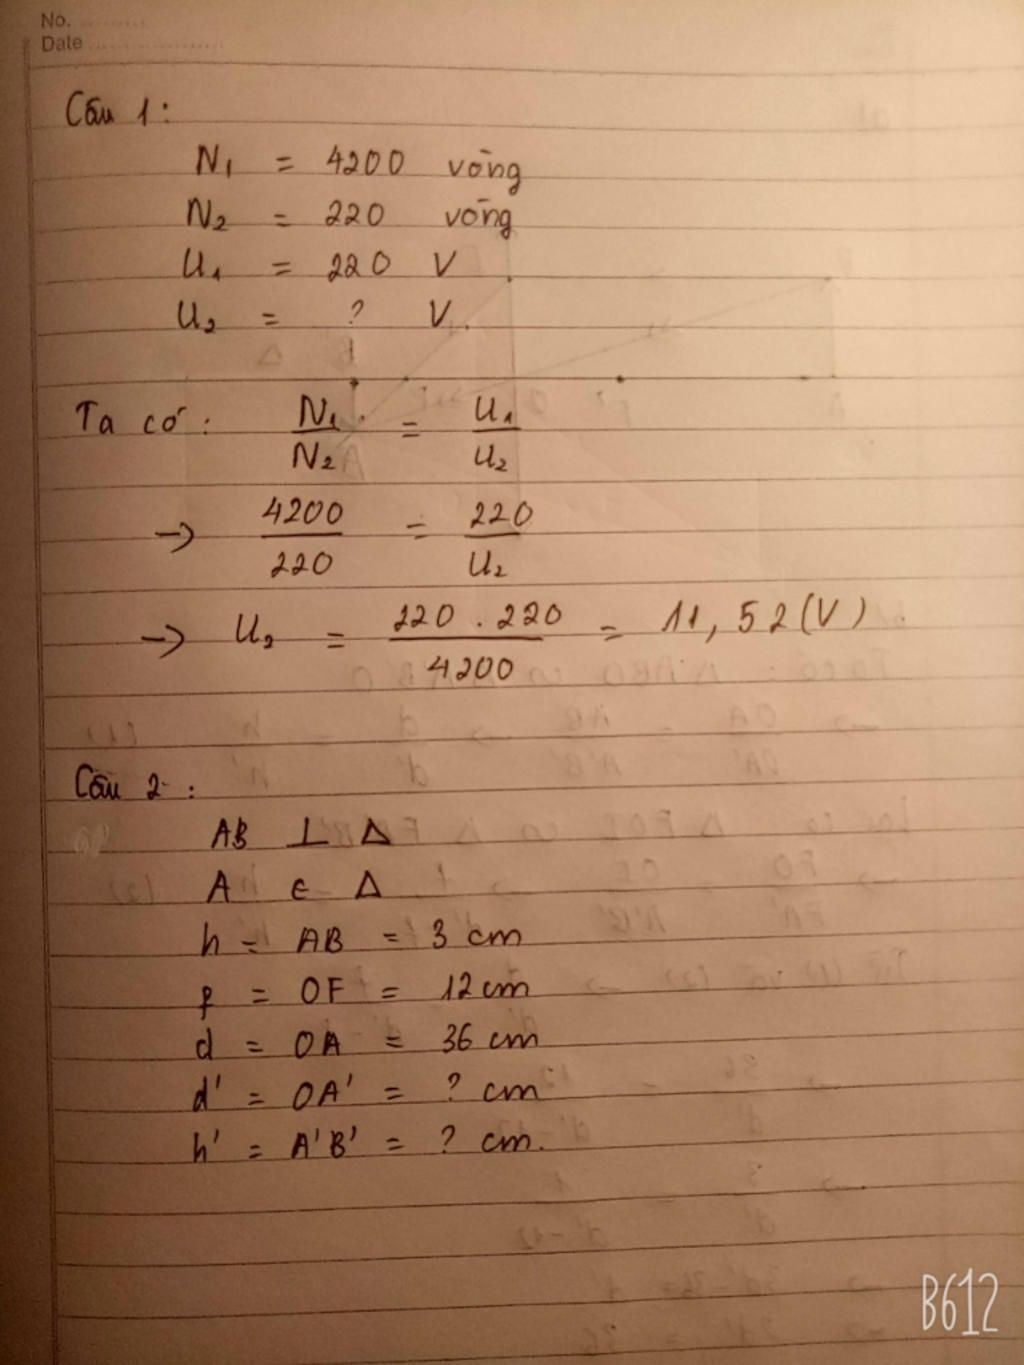 No. ..........
Date ....................
Câu 1:
N₁ = 4200 vòng
N₂ = 220 vòng
U₁ = 220 V
U₂ = ? V.
Ta có: N₁/N₂ = U₁/U₂
→ 4200/220 = 220/U₂
→ U₂ = 220 . 220/4200 = 11,52(V)
Câu 2:
AB ⊥ Δ
A ∈ Δ
h = AB = 3 cm
f = OF = 12 cm
d = OA = 36 cm
d' = OA' = ? cm
h' = A'B' = ? cm.
B612